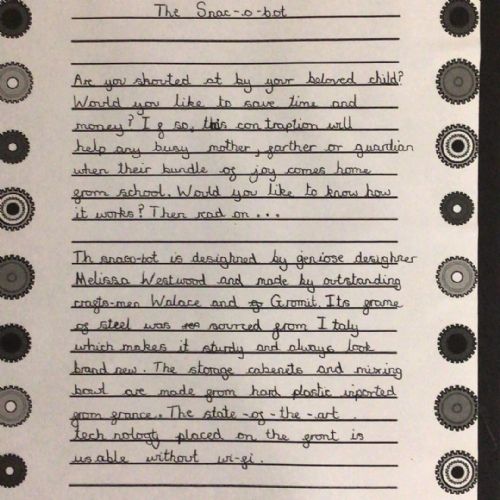 The Snac-o-bot
Are you shouted at by your beloved child?
Would you like to save time and
money? If so, this contraption will
help any busy mother, farther or guardian
when their bundle of joy comes home
from school. Would you like to know how
it works? Then read on...
Th snaco-bot is desighned by geniose desighner
Melissa Westwood and made by outstanding
crafts-men Walace and Gromit. Its frame
of steel was sourced from Italy
which makes it sturdy and always look
brand new. The storage cabenits and mixing
bowl are made from hard plastic inported
from france. The state-of-the-art
technology placed on the front is
usable without wi-fi.